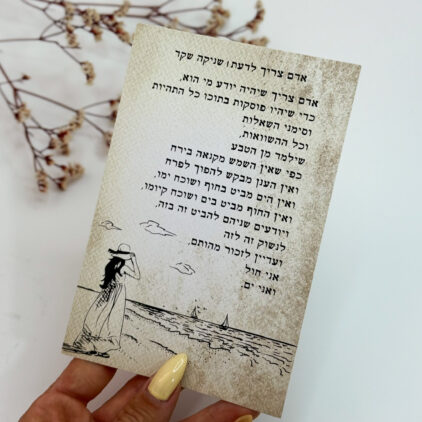 אדם צריך לדעת / שניקה שקר
אדם צריך שיהיה יודע מי הוא,
כדי שיהיו פוסקות בתוכו כל התהיות
וסימני השאלות
וכל ההשוואות,
שילמד מן הטבע
כפי שאין השמש מקנאה בירח
ואין הענן מבקש להפוך לפרח
ואין הים מביט בחוף ושוכח ימו,
ואין החוף מביט בים ושוכח קיומו,
ויודעים שניהם להביט זה בזה,
לנשוק זה לזה
ועדיין לזכור מהותם,
אני חול
ואני ים.